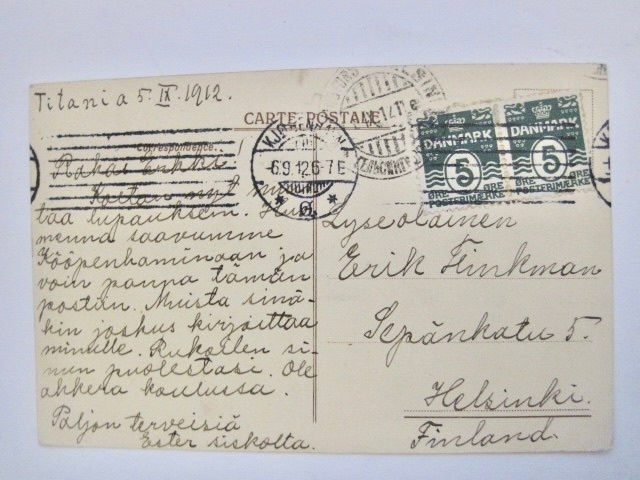 Titania 5. IX. 1912.
CARTE POSTALE
Correspondence.
Rakas Erkki!
Koetan nyt
taa lupauksem.
menna saavumme
Kööpenhaminaan ja
voin panna tämän
postiin. Muista sinä-
kin joskus kirjoittaa
minulle. Rukoilen si-
nun puolestasi. Ole
ahkera koulussa.
Paljon terveisiä
Ester siskolta.
KJØBENHAVN
6.9.12.6-7E
DANMARK
5
ØRE
POSTFRIMÆRKE
DANMARK
5
ØRE
POSTFRIMÆRKE
Lyseolainen
Erik Flinkman
Sepänkatu 5.
Helsinki.
Finland.